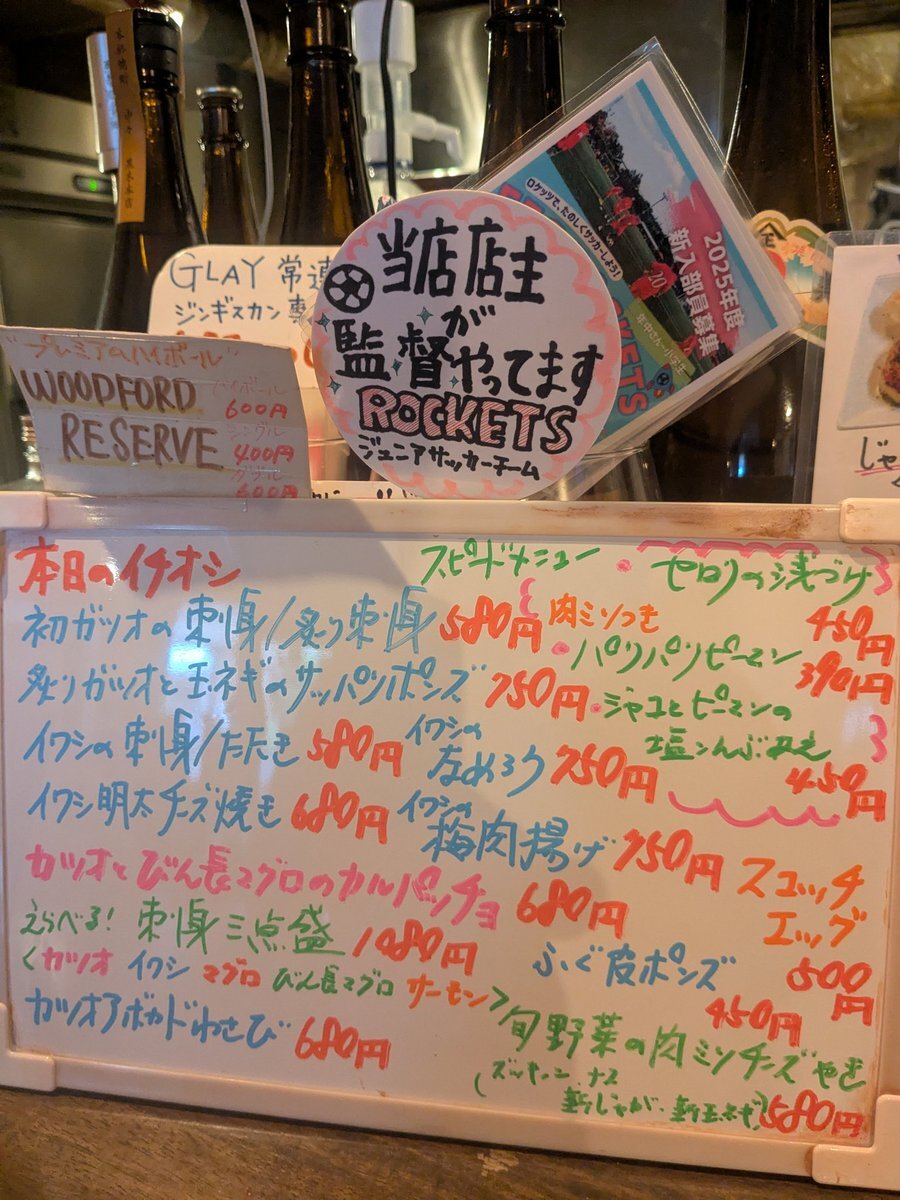 GLAY 常連
ジンギスカン
"プレミアムハイボール"
WOODFORD
RESERVE
ハイボール
600円
シングル
400円
ダブル
600円
当店店主
が
監督やってます
ROCKETS
ジュニアサッカーチーム
ロケッツで、たのしくサッカーしよう!
2025年度
新入部員募集
年中さん~小学6年
じゃ
本日のイチオシ
初ガツオの刺身/炙り刺身 580円
炙りガツオと玉ネギのサッパリポンズ 750円
イワシの刺身/たたき 580円
イワシの
なめろう 750円
イワシ明太チーズ焼き 680円
イワシの
梅肉揚げ 750円
カツオとびん長マグロのカルパッチョ 680円
えらべる! 刺身三点盛 1080円
<カツオ イワシ マグロ びん長マグロ サーモン>
カツオアボカドわさび 680円
スピードメニュー
セロリの浅づけ
450円
肉ミソつき
パリパリピーマン
390円
ジャコとピーマンの
塩こんぶあえ
450円
スコッチ
エッグ
500円
ふぐ皮ポンズ
450円
旬野菜の肉ミソチーズやき
(ズッキーニ・ナス
新じゃが・新玉ネギ) 580円